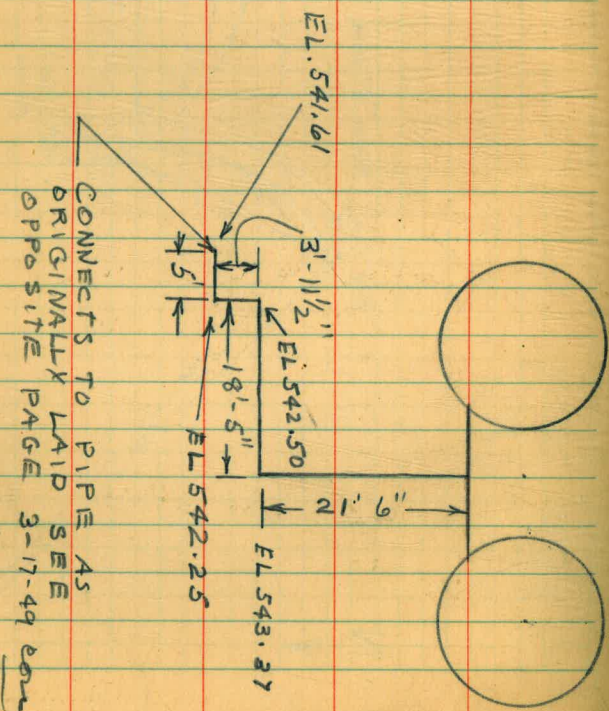 EL. 541.61
3'-11½"
EL 542.50
5'
18'-5"
21' 6"
EL 542.25
EL 543.37
CONNECTS TO PIPE AS
ORIGINALLY LAID SEE
OPPOSITE PAGE 3-17-49